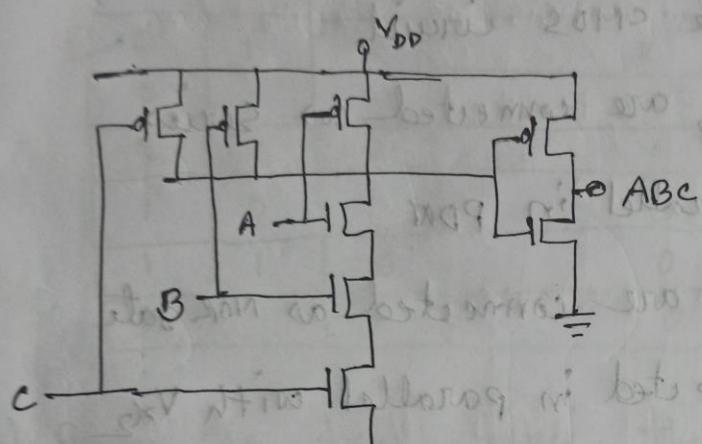 VDD
ABC
A
B
C